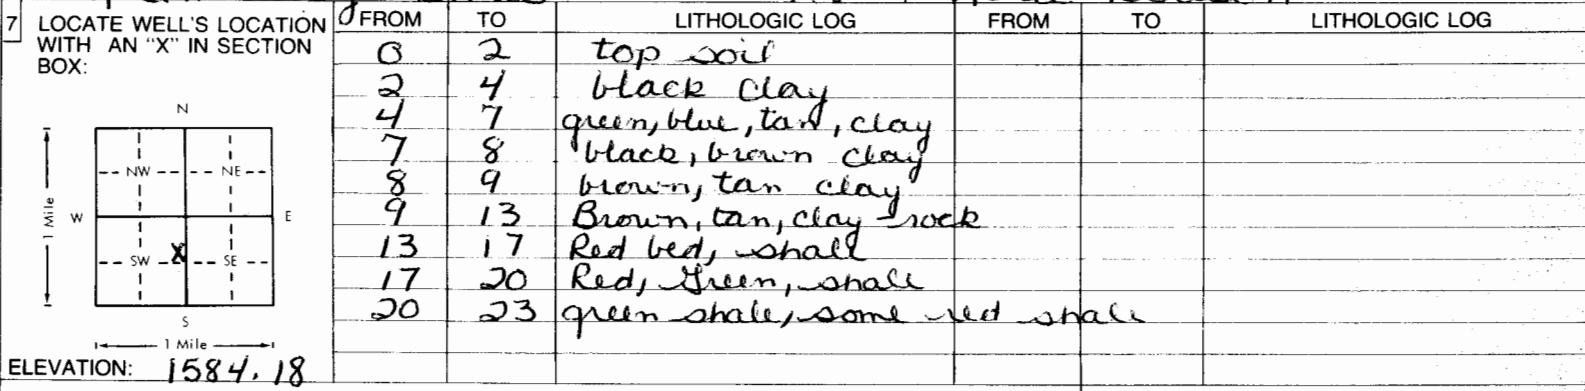 7 LOCATE WELL'S LOCATION WITH AN "X" IN SECTION BOX:
N
NW NE
W E
1 Mile
X
SW SE
S
1 Mile
ELEVATION: 1584.18
FROM TO LITHOLOGIC LOG FROM TO LITHOLOGIC LOG
0 2 top soil
2 4 black clay
4 7 green, blue, tan, clay
7 8 black, brown clay
8 9 brown, tan clay
9 13 Brown, tan, clay -rock
13 17 Red bed, shale
17 20 Red, Green, shale
20 23 green shale, some red shale